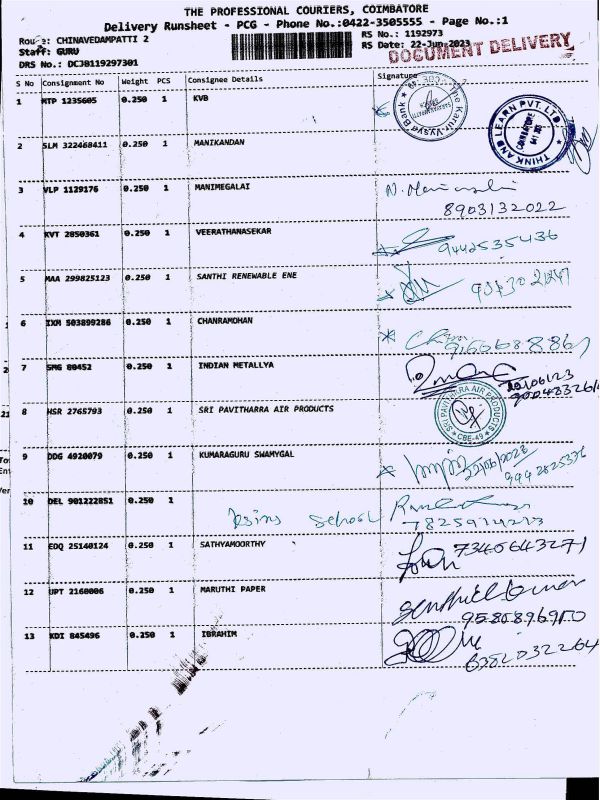 THE PROFESSIONAL COURIERS, COIMBATORE
Delivery Runsheet - PCG - Phone No.:0422-3505555 - Page No.:1
Route: CHINAVEDAMPATTI 2
RS No.: 1192973
Staff: GURU
RS Date: 22-Jun-2023
DOCUMENT DELIVERY
DRS No.: DCJB119297301
S No Consignment No Weight PCS Consignee Details Signature
1 MTP 1235605 0.250 1 KVB
The Karur Vysya Bank
THINK AND LEARN PVT. LTD.
COIMBATORE
2 SLM 322468411 0.250 1 MANIKANDAN
3 VLP 1129176 0.250 1 MANIMEGALAI
8903132022
4 KVT 2850361 0.250 1 VEERATHANASEKAR
9442535436
5 MAA 299825123 0.250 1 SANTHI RENEWABLE ENE
6 IXM 503899286 0.250 1 CHANRAMOHAN
7 SMG 80452 0.250 1 INDIAN METALLYA
8 HSR 2765793 0.250 1 SRI PAVITHARRA AIR PRODUCTS
SRI PAVITHARRA AIR PRODUCTS
CBE-49
9 DDG 4920079 0.250 1 KUMARAGURU SWAMYGAL
22/06/2023
9942825336
10 DEL 901222851 0.250 1
school
7825914213
11 EDQ 25140124 0.250 1 SATHYAMOORTHY
7340643271
12 UPT 2160006 0.250 1 MARUTHI PAPER
13 KDI 845496 0.250 1 IBRAHIM
6382032264